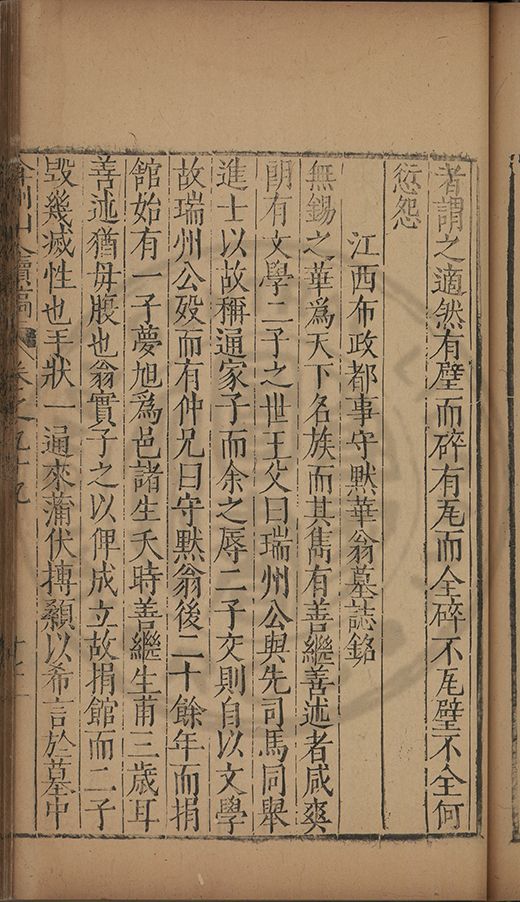 者謂之適然有璧而碎有瓦而全碎不瓦璧不全何
愆怨
江西布政都事守默華翁墓誌銘
無錫之華為天下名族而其雋有善繼善述者咸爽
朗有文學二子之世王父曰瑞州公與先司馬同舉
進士以故稱通家子而余之辱二子交則自以文學
故瑞州公歿而有仲兄曰守默翁後二十餘年而捐
館始有一子夢旭為邑諸生夭時善繼生甫三歲耳
善述猶毋腹也翁實子之以俾成立故捐館而二子
毀幾滅性也手狀一通來蒲伏摶顙以希言於墓中
弇州山人續稿 卷之九十九